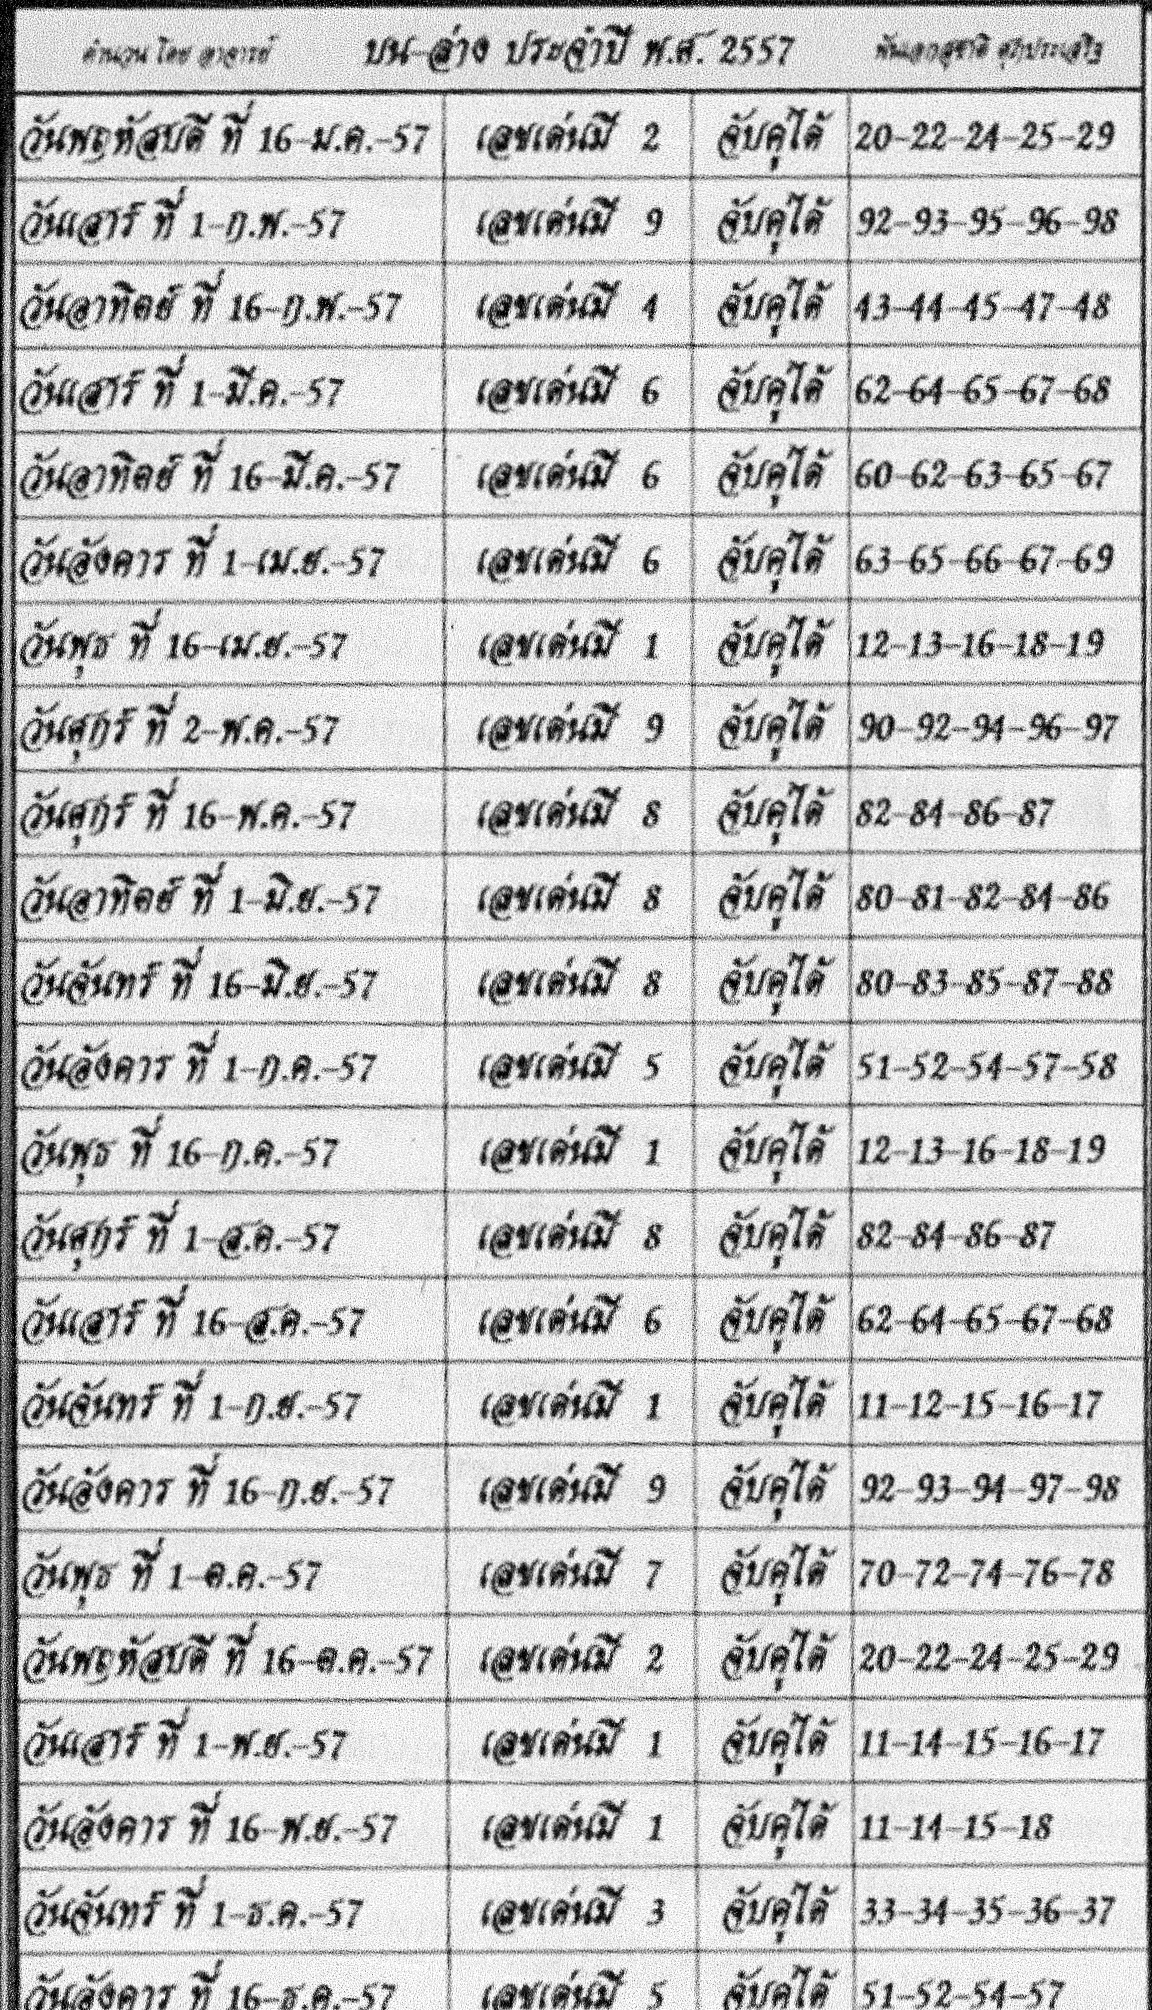 คำนวน โดย อาจารย์ บน-ล่าง ประจำปี พ.ศ. 2557
วันพฤหัสบดี ที่ 16-ม.ค.-57 เลขเด่นมี 2 จับคู่ได้ 20-22-24-25-29
วันเสาร์ ที่ 1-ก.พ.-57 เลขเด่นมี 9 จับคู่ได้ 92-93-95-96-98
วันอาทิตย์ ที่ 16-ก.พ.-57 เลขเด่นมี 4 จับคู่ได้ 43-44-45-47-48
วันเสาร์ ที่ 1-มี.ค.-57 เลขเด่นมี 6 จับคู่ได้ 62-64-65-67-68
วันอาทิตย์ ที่ 16-มี.ค.-57 เลขเด่นมี 6 จับคู่ได้ 60-62-63-65-67
วันอังคาร ที่ 1-เม.ย.-57 เลขเด่นมี 6 จับคู่ได้ 63-65-66-67-69
วันพุธ ที่ 16-เม.ย.-57 เลขเด่นมี 1 จับคู่ได้ 12-13-16-18-19
วันศุกร์ ที่ 2-พ.ค.-57 เลขเด่นมี 9 จับคู่ได้ 90-92-94-96-97
วันศุกร์ ที่ 16-พ.ค.-57 เลขเด่นมี 8 จับคู่ได้ 82-84-86-87
วันอาทิตย์ ที่ 1-มิ.ย.-57 เลขเด่นมี 8 จับคู่ได้ 80-81-82-84-86
วันจันทร์ ที่ 16-มิ.ย.-57 เลขเด่นมี 8 จับคู่ได้ 80-83-85-87-88
วันอังคาร ที่ 1-ก.ค.-57 เลขเด่นมี 5 จับคู่ได้ 51-52-54-57-58
วันพุธ ที่ 16-ก.ค.-57 เลขเด่นมี 1 จับคู่ได้ 12-13-16-18-19
วันศุกร์ ที่ 1-ส.ค.-57 เลขเด่นมี 8 จับคู่ได้ 82-84-86-87
วันเสาร์ ที่ 16-ส.ค.-57 เลขเด่นมี 6 จับคู่ได้ 62-64-65-67-68
วันจันทร์ ที่ 1-ก.ย.-57 เลขเด่นมี 1 จับคู่ได้ 11-12-15-16-17
วันอังคาร ที่ 16-ก.ย.-57 เลขเด่นมี 9 จับคู่ได้ 92-93-94-97-98
วันพุธ ที่ 1-ต.ค.-57 เลขเด่นมี 7 จับคู่ได้ 70-72-74-76-78
วันพฤหัสบดี ที่ 16-ต.ค.-57 เลขเด่นมี 2 จับคู่ได้ 20-22-24-25-29
วันเสาร์ ที่ 1-พ.ย.-57 เลขเด่นมี 1 จับคู่ได้ 11-14-15-16-17
วันอังคาร ที่ 16-พ.ย.-57 เลขเด่นมี 1 จับคู่ได้ 11-14-15-18
วันจันทร์ ที่ 1-ธ.ค.-57 เลขเด่นมี 3 จับคู่ได้ 33-34-35-36-37
วันอังคาร ที่ 16-ธ.ค.-57 เลขเด่นมี 5 จับคู่ได้ 51-52-54-57